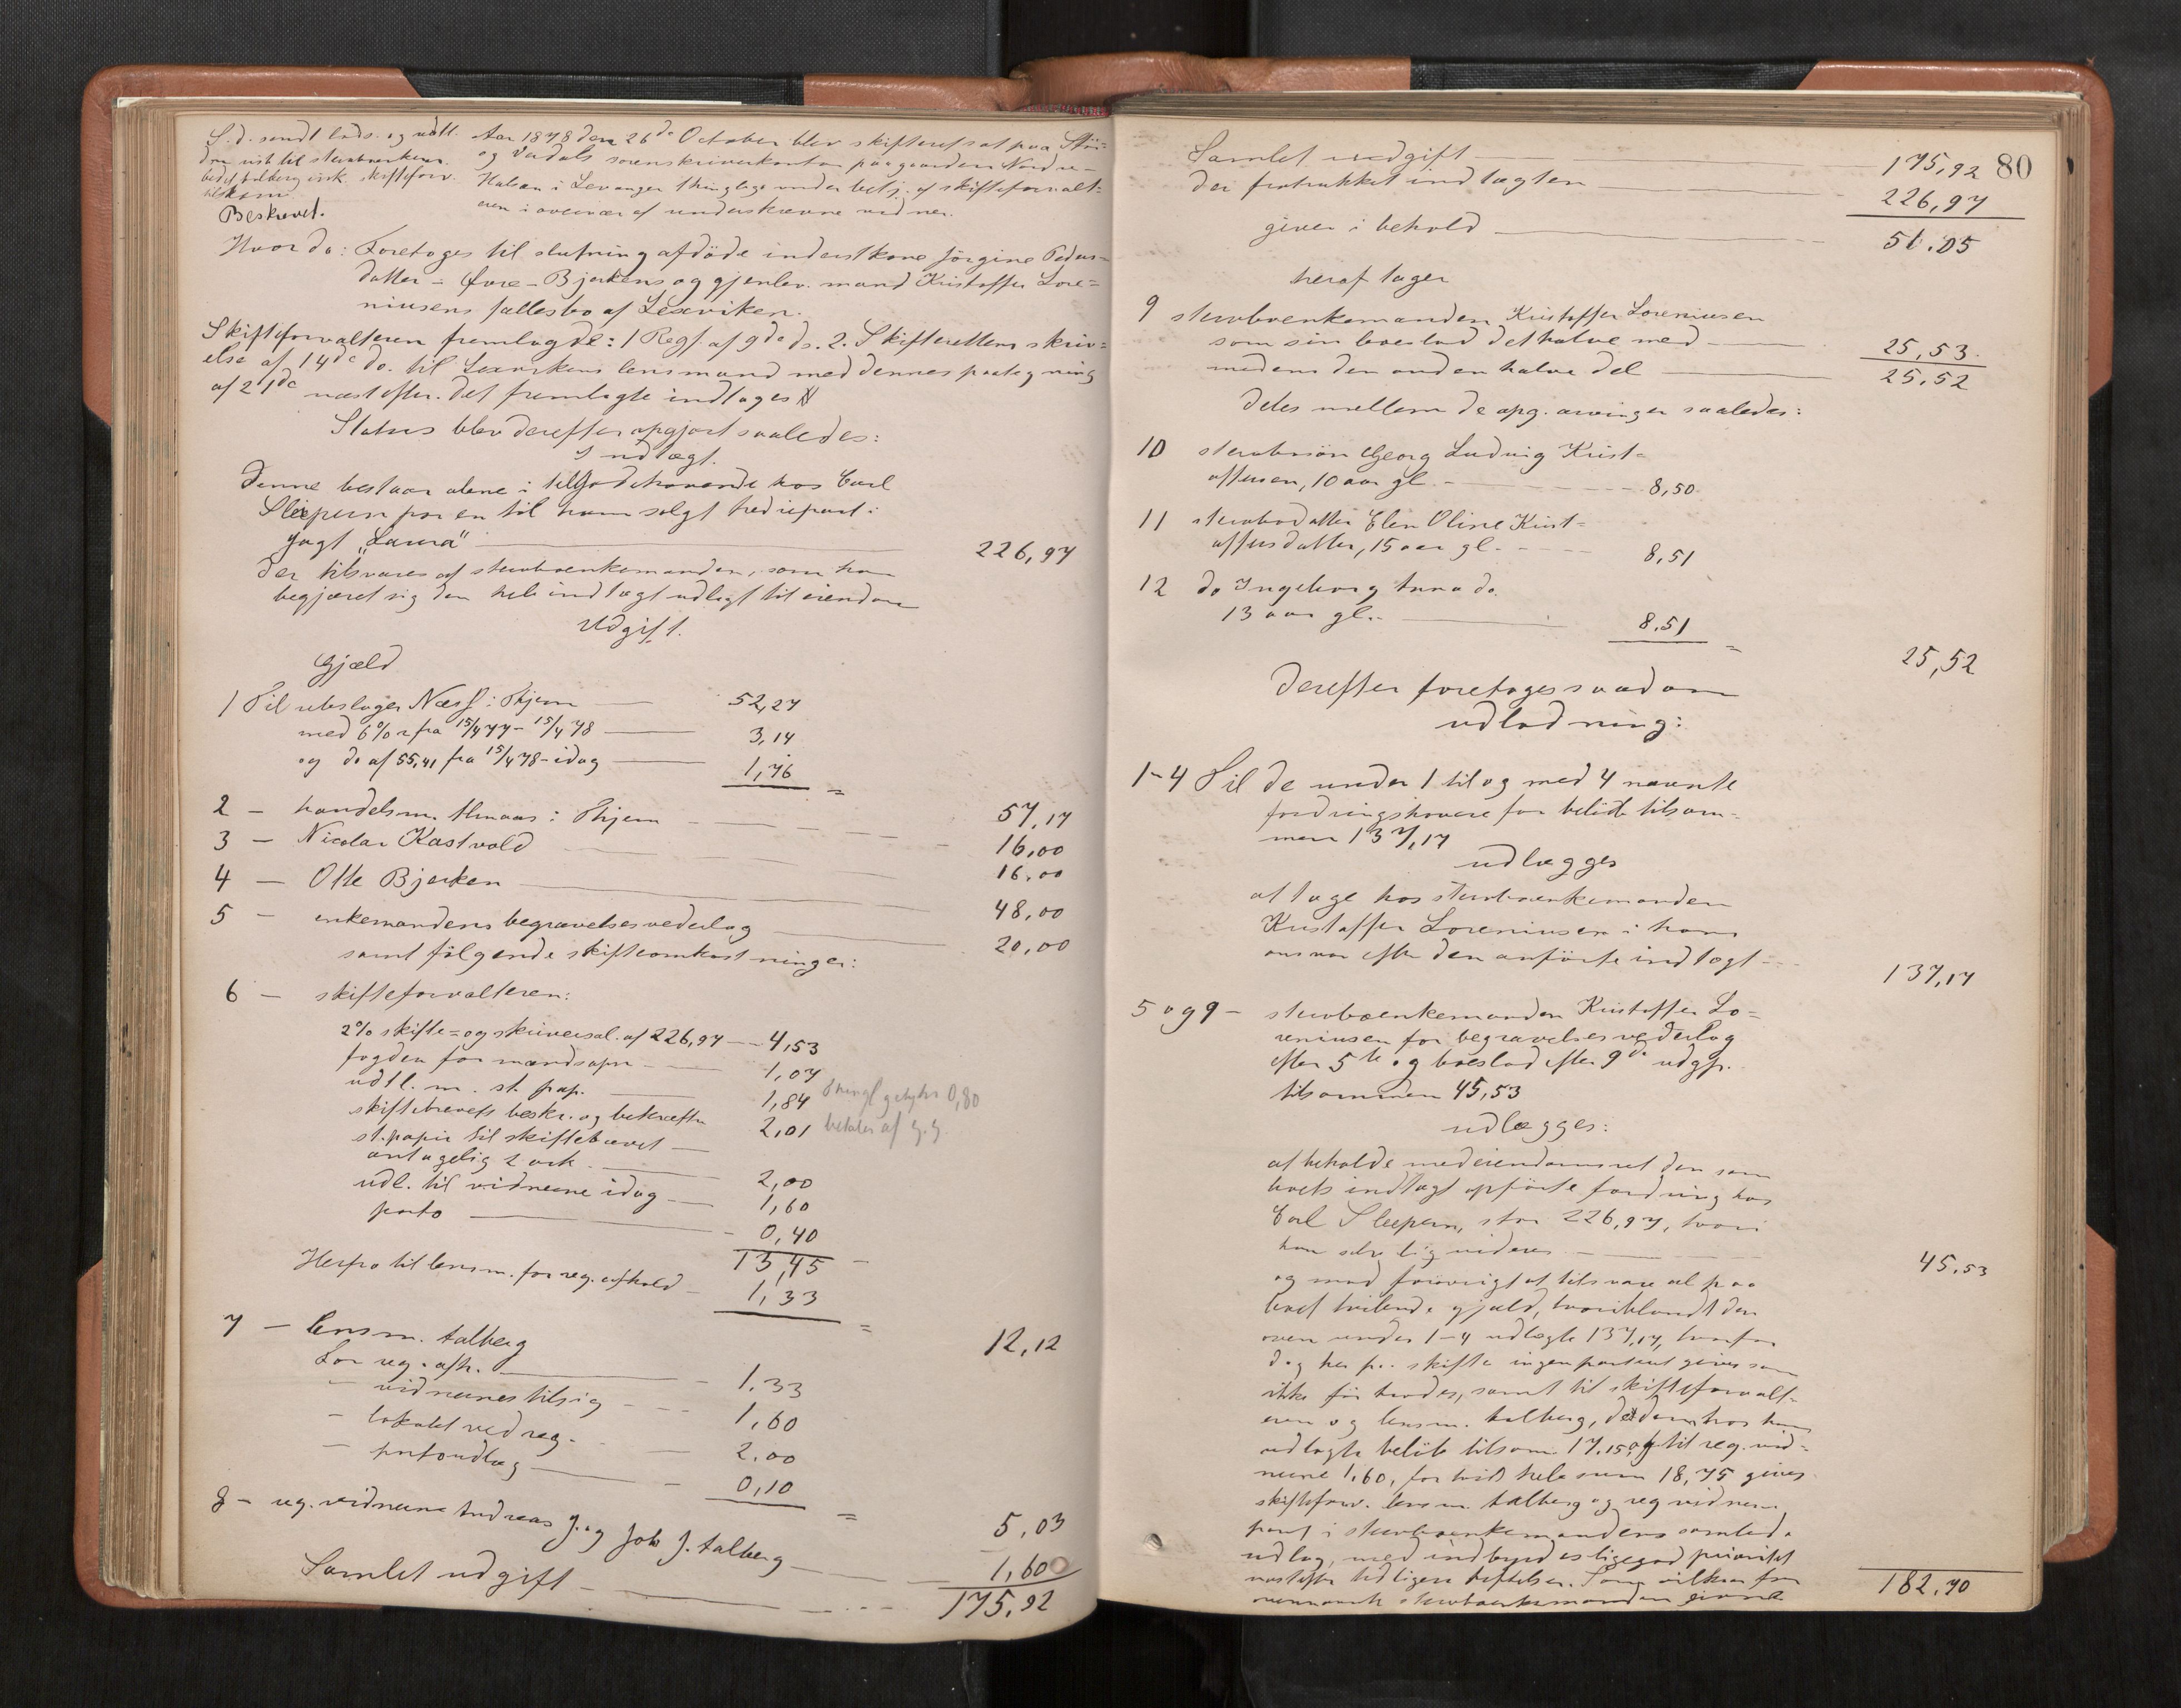 S. d. sendt lods. og udtt.
den vist til sterboenkem.
ved lensm. Aalberg insk. skifteforv.
Beskrevet.
Aar 1878 den 26de October blev skifteret sat paa Stör-
og Værdals sorenskriverkontor paa gaarden Nordre-
Halsan i Levanger thinglag under betj. af skifteforvalt-
eren i overvær af underskrevne vidner.
Hvor da: Foretoges til slutning afdöde inderstkone Jörgine Peders-
datter - Övre-Bjerkens og gjenlev. mand Kristoffer Lore-
niusens fællesbo af Lexviken.
Skifteforvalteren fremlagde: 1 Regf. af 9de ds. 2. Skifterettens skriv-
else af 14de do. til Lexvikens lensmand med dennes paategning
af 21de næstefter. Det fremlagte indtages
Status blev derefter opgjort saaledes:
Indtægt.
Denne bestaar alene i tilgodehavende hos Carl
Sleipern for en til ham solgt trediepart i
jagt "Laura" 226,97
der tilsvares af sterboenkemanden, som har
begjæret sig den hele indtægt udlagt til eiendom
Udgift.
Gjæld
1 Til rebslager Næss i Thjem 52,27
med 6% r fra 15/4 77 - 15/4 78 3,14
og do af 55,41 fra 15/4 78 - idag 1,76 =
57,17
2 - handelsm. Almaas i Thjem 16,00
3 - Nicolai Kastvold 16,00
4 - Otte Bjerken 48,00
5 - enkemandens begravelsesvederlag 20,00
samt fölgende skifteomkostninger:
6 - skifteforvalteren:
2% skifte- og skriversal. af 226,97 4,53
fogden for mandsopn 1,07
udtl. m. st. pap. 1,84
skiftebrevets beskr. og bekræft 2,01
st. papir til skiftebrevet
antagelig 2 ark 2,00
udl. til vidnerne idag 1,60
porto 0,40
13,45
Herfra til lensm. for reg. afhold 1,33 =
12,12
Thingl gebyhr 0,80
betales af
7 - lensm. Aalberg
for reg. afh. 1,33
- vidnernes tilsig 1,60
- lokalet ved reg. 2.00
- portoudlæg 0,10 =
5,03
8 - reg. vidnerne Andreas J. og Joh J. Aalberg 1,60
Samlet udgift 175,92
80
Samlet udgift 175,92
der fratrukket indtægten 226,97
giver i behold 51.05
heraf tager
9 sterboenkemanden Kristoffer Loreniusen
som sin boeslod det halve med 25,53.
medens den anden halve del 25,52
deles mellem de opg. arvinger saaledes:
10 sterbosön Georg Ludvig Krist-
offersen, 10 aar gl. 8,50
11 sterbodatter Elen Oline Krist-
offersdatter, 15 aar gl. 8,51
12 do Ingeborg Anna do.
13 aar gl. 8.51 =
25,52
Derefter foretoges saadan
udlodning:
1-4 Til de under 1 til og med 4 nævnte
fordringshavere for belöb tilsam-
men 137,17
udlægges
at tage hos sterboenkemanden
Kristoffer Loreniusen i hans
ansvar efter den anförte indtægt 137,17
5 og 9 - sterboenkemanden Kristoffer Lo-
reniusen for begravelsesvederlag
efter 5te og boeslod efter 9de udgp.
tilsammen 45,53
udlægges:
at beholde med eiendomsret den som
boets indtægt opförte fordring hos
Carl Sleipern, stor 226,97, hvori
han selv liqvideres 45,53
og mod forövrigt at tilsvare al paa
boet hvilende gjæld, hvoriblandt den
oven under 1-4 udlagte 137,17, hvorfor
dog her paa skifte ingen panteret gives som
ikke för havdes, samt til skifteforvalt-
eren og lensm. Aalberg, de dem hos ham
udlagte belöb tilsam. 17.15, og til reg. vid-
nerne 1,60, for hvis hele sum 18,75 gives
skifteforv. lensm. Aalberg og reg vidnerne
pant i sterboenkemandens samlede
udlæg, med indbyrdes ligegod prioritet
næstefter tidligere heftelser. Som vilkaar for
ovennævnte sterboenkemanden givne
182,70